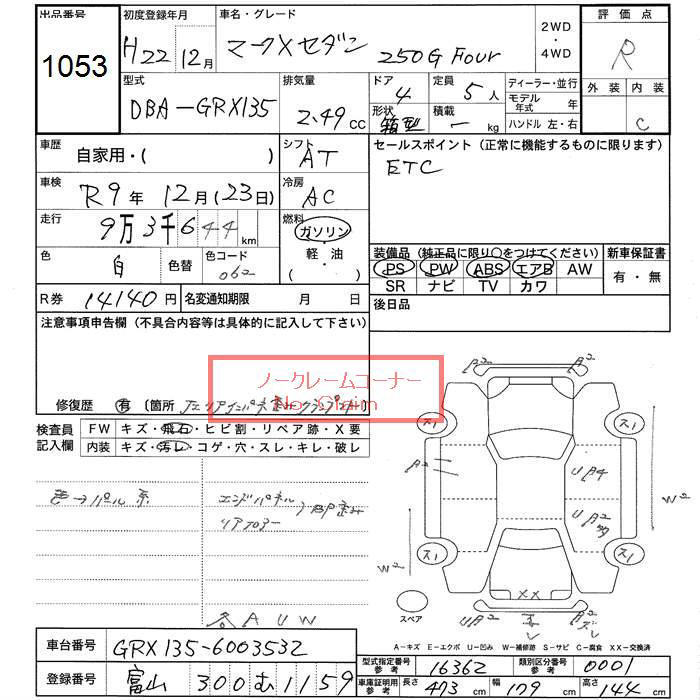 出品番号
1053
初度登録年月
H22 12月
車名・グレード
マークXセダン 250G Four
2WD
・
4WD
評価点
R
外装 内装
C
型式
DBA-GRX135
排気量
2.49 cc
ドア
4
形状
箱型
定員
5人
積載
ー kg
ディーラー・並行
モデル年式 年
ハンドル 左・右
車歴
自家用・( )
シフト
AT
セールスポイント (正常に機能するものに限ります)
ETC
車検
R9年 12月 (23日)
冷房
AC
走行
9万3千644km
燃料
ガソリン
・
軽・油
( )
色
白
色替
色コード
062
装備品 (純正品に限り○をつけてください)
PS PW ABS エアB AW
SR ナビ TV カワ
新車保証書
有・無
R券 14140円
名変通知期限 月 日
後日品
注意事項申告欄 (不具合内容等は具体的に記入して下さい)
ノークレームコーナー
No Claim
修復歴 有 〔箇所
検査員記入欄
FW キズ・飛石・ヒビ割・リペア跡・X要
内装 キズ・汚レ・コゲ・穴・スレ・キレ・破レ
色→パール系
エンドパネル
リアフロアー
各AUW
A2 A2
ス1 ス1
A2
UA4
UA2
W2
W2
ス1 ス1
XX
スペア
UA2
A2
A-キズ E-エクボ U-凹み W-補修跡 S-サビ C-腐食 XX-交換済
車台番号
GRX135-6003532
登録番号
富山 300 む 1159
型式指定番号
参考
16362
類別区分番号
参考
0001
車庫証明用
参考
長さ 473cm
幅 179cm
高さ 144cm